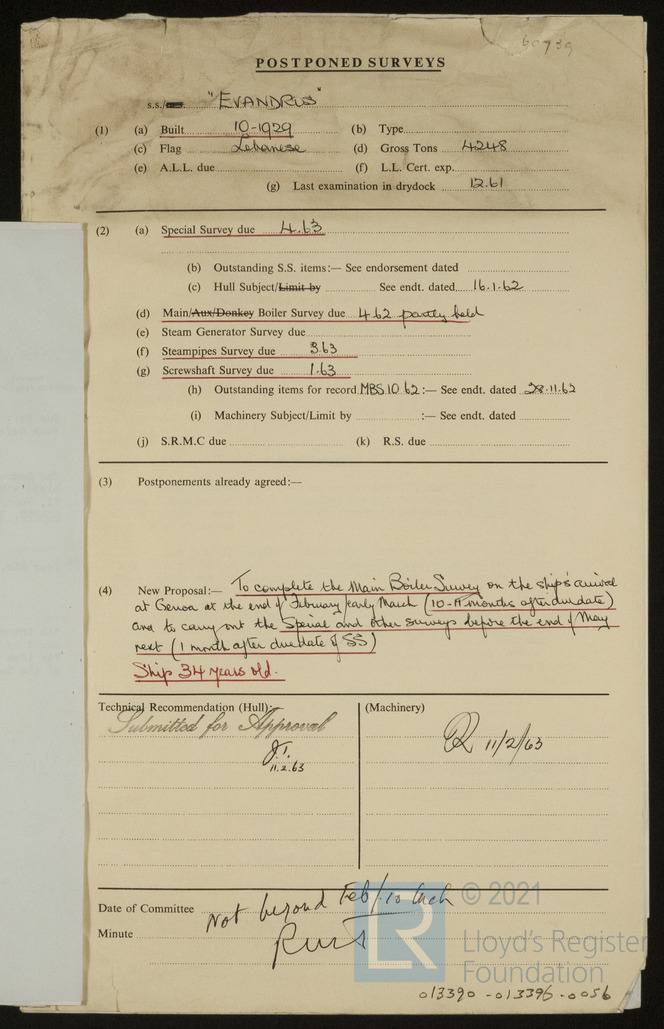 60739
POSTPONED SURVEYS
s.s./ "EVANDRUS"
(1) (a) Built 10-1929 (b) Type
(c) Flag Lebanese (d) Gross Tons 4248
(e) A.L.L. due (f) L.L. Cert. exp.
(g) Last examination in drydock 12.61
(2) (a) Special Survey due 4.63
(b) Outstanding S.S. items:— See endorsement dated
(c) Hull Subject/Limit by See endt. dated 16.1.62
(d) Main/Aux/Donkey Boiler Survey due 4.62 partly held
(e) Steam Generator Survey due
(f) Steampipes Survey due 3.63
(g) Screwshaft Survey due 1.63
(h) Outstanding items for record MBS 10.62 :— See endt. dated 28.11.62
(i) Machinery Subject/Limit by :— See endt. dated
(j) S.R.M.C due (k) R.S. due
(3) Postponements already agreed:—
(4) New Proposal:— To complete the Main Boiler Survey on the ship's arrival
at Genoa at the end of February/early March (10-11 months after due date)
and to carry out the Special and other surveys before the end of May
next (1 month after due date of SS)
Ship 34 years old.
Technical Recommendation (Hull):— (Machinery)
Submitted for Approval
J.T. 11/2/63
11.2.63
Date of Committee Not beyond Feb/.10
Minute
© 2021
LR
Lloyd's Register
Foundation
013390-013396-0056